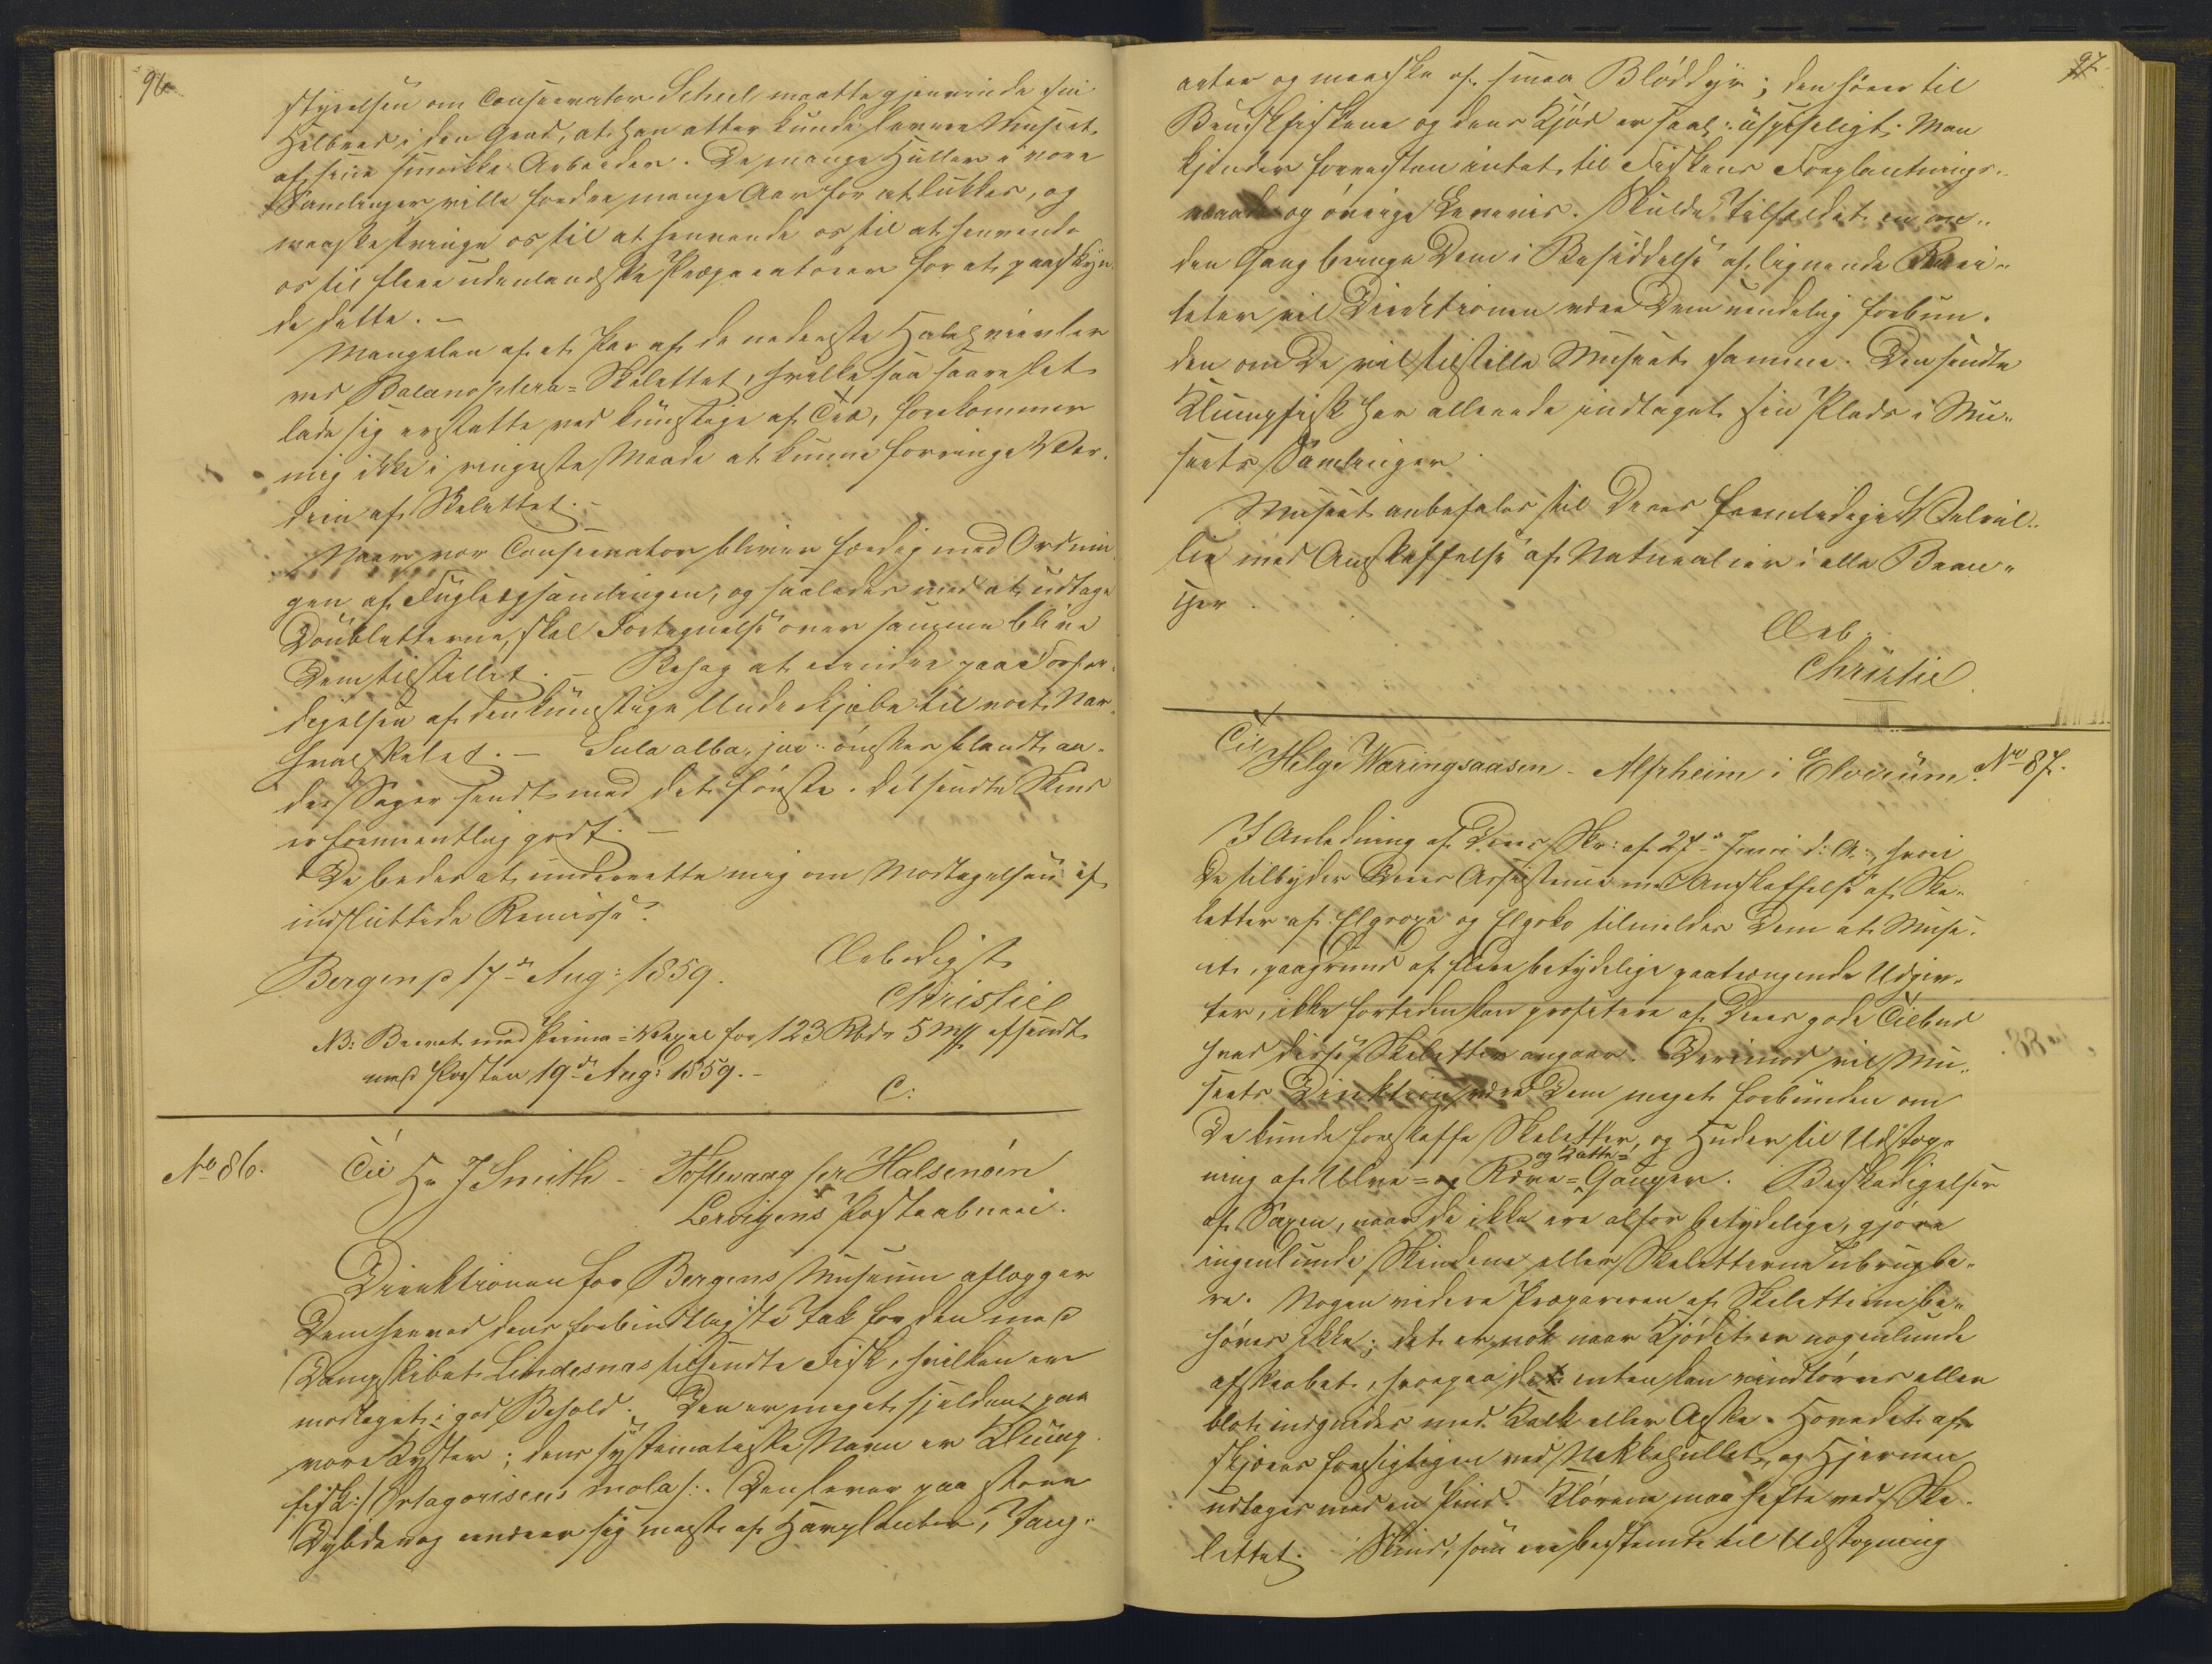 96.
styrelsen om Conservator Scheel maatte gjenvinde sin
Helbred i den Grad, at han atter kunde levere Museet
af sine smukke Arbeider. De mange Huller i vore
Samlinger ville fordre mange Aar for at lukkes, og
maaske tvinge os til at henvende os til at henvende
os til flere udenlandske Præparatorer for at paaskyn-
de dette. –
Mangelen af et Par af de nederste Halshvirvler
ved Balænoptera-Skelettet, hvilke saa saare let
lade sig erstatte ved kunstige af Træ, forekommer
mig ikke i ringeste Maade at kunne forringe Vær-
dien af Skelettet. –
Naar vor Conservator bliver færdig med Ordnin-
gen af Fuglesamlingen, og saaledes med at udtage
Doubletterne, skal Fortegnelse over samme blive
Dem tilstillet. – Behag at erindre paa Forfær-
digelsen af den kunstige Underkjæbe til vort Nar-
hvalskelet. – Sula alba, juv. ønskes blandt an-
dre Sager sendt med det første. Det sendte Skind
er formentlig godt. –
De bedes at underrette mig om Modtagelsen af
indsluttede Remisse.
Ærbødigst
Bergen p 17de Aug: 1859.
Christie
NB: Brevet med Prima-Vexel for 123 Rbdr 5 Mk afsendt
med Posten 19de Aug: 1859. –
C:
No 86.
Til Hr J Smith – Toftevaag pr Halsenøen
Lervigens Postaabneri.
Direktionen for Bergens Museum aflægger
Dem herved dens forbindtligste Tak for den med
Dampskibet Lindesnæs tilsendte Fisk, hvilken er
modtaget i god Behold. Den er meget sjelden paa
vore Kyster; dens systematiske Navn er Klump-
fisk :/ Ortagoriscus mola /:. Den lever paa store
Dybder og nærer sig mest af Havplanter, Tang-
97.
arter og maaske af smaa Bløddyr; den hører til
Bruskfiskene og dens Kjød er saal: uspiseligt. Man
kjender forresten intet til Fiskens Forplantnings-
maade og øvrige Levevis. Skulde Tilfældet en an-
den Gang bringe Dem i Besiddelse af lignende Rari-
teter vil Direktionen være Dem uendelig forbun-
den om De vil tilstille Museet samme. Den sendte
Klumpfisk har allerede indtaget sin Plads i Mu-
seets Samlinger.
Museet anbefales til Deres fremtidige Velvil-
lie med Anskaffelse af Naturalier i alle Bran-
cher.
Ærb.
Christie
Til Helge Wæringsaasen – Alpheim i Elverum. No 87.
I Anledning af Deres Skr: af 27de Juni d: A:, hvori
De tilbyder Deres Assistence med Anskaffelse af Ske-
letter af Elgoxe og Elgsko tilmeldes Dem at Muse-
et, paagrund af flere betydelige paatrængende Udgif-
ter, ikke fortiden kan profitere af Deres gode Tilbud
hvad disse Skeletter angaar. Derimod vil Mu-
seets Direktion være Dem meget forbunden om
De kunde forskaffe Skeletter, og Huder til Udstop-
og Katte-
ning af Ulve- og Ræve-Gauper. Beskadigelser
af Saxen, naar de ikke ere altfor betydelige, gjøre
ingenlunde Skindene eller Skeletterne ubrugba-
re. Nogen videre Præpareren af Skeletterne be-
høves ikke; det er nok naar Kjødet er nogenlunde
afskrabet, hvorpaa det enten kan vindtørres eller
blot indgnides med Kalk eller Aske. Hovedet af-
skjæres forsigtigen ved Nakkehullet, og Hjernen
udtages med en Pind. Kløerne maa hefte ved Ske-
lettet. Skind, som ere bestemte til Udstopning